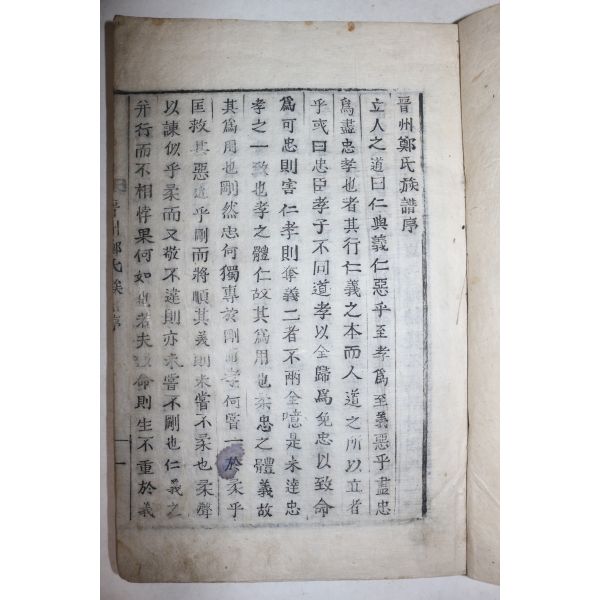 晉州鄭氏族譜序
立人之道曰仁與義仁惡乎至孝爲至義惡乎盡忠
爲盡忠孝也者其行仁義之本而人道之所以立者
乎或曰忠臣孝子不同道孝以全歸爲免忠以致命
爲可忠則害仁孝則奪義二者不兩全噫是未達忠
孝之一致也孝之體仁故其爲用也柔忠之體義故
其爲用也剛然忠何獨專於剛而孝何嘗一於柔乎
匡救其惡近乎剛而將順其美則未嘗不柔也柔聲
以諫似乎柔而又敬不違則亦未嘗不剛也仁義之
并行而不相悖果何如也若夫致命則生不重於義
晉州鄭氏族譜序
一